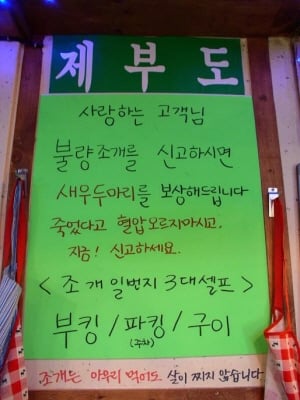 제부도
사랑하는 고객님
불량조개를 신고하시면
새우두마리를 보상해드립니다
죽었다고 혈압오르지마시고.
지금! 신고하세요.
< 조개일번지 3대셀프 >
부킹 / 파킹 / 구이
(주차)
조개는 아무리 먹어도 살이 찌지 않습니다